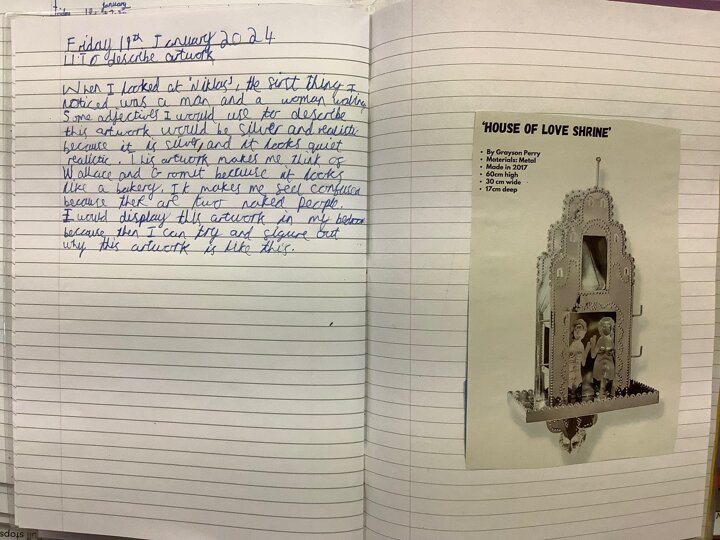 January
Friday 19th January 2024
LI: To describe artwork
When I looked at 'Niklas', the first thing I
noticed was a man and a woman
Some adjectives I would use to describe
this artwork would be silver and realistic
because it is silver, and it looks quiet
realistic. This artwork makes me think of
Wallace and Gromit because it looks
like a bakery. It makes me feel confused
because ther are two naked people.
I would display this artwork in my bedroom
because then I can try and figure out
why this artwork is like this.
'HOUSE OF LOVE SHRINE'
• By Grayson Perry
• Materials: Metal
• Made in 2017
• 60cm high
• 30 cm wide
• 17cm deep